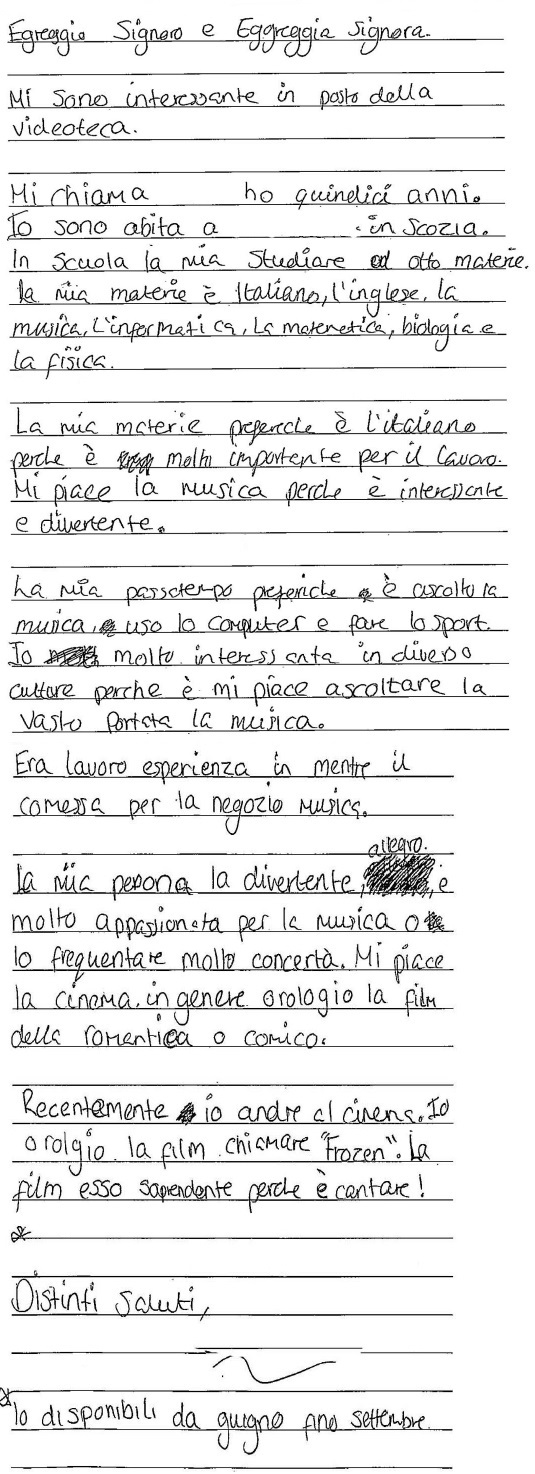 Egreggio Signoro e Eggreggia Signora.
Mi sono interessante in posto della
videoteca.
Mi chiama ho quindici anni.
Io sono abita a in Scozia.
In Scuola la mia studiare ad otto materie.
la mia materie è Italiano, l'inglese, la
musica, L'informatica, La matematica, biologia e
la fisica.
La mia materie preferiche è L'italiano
perche è molto importente per il Lavoro.
Mi piace la musica perche è interessante
e divertente.
La mia passatempo preferiche è ascolto la
musica, uso lo computer e fare lo sport.
Io molto interessanta in diverso
culture perche è mi piace ascoltare la
vasto portata la musica.
Era lavoro esperienza in mentre il
comessa per la negozio musica.
allegro.
la mia persona la divertente, , e
molto appassionata per la musica o
lo frequentare molto concertà. Mi piace
la cinema. in genere orologio la film
della romantica o comico.
Recentemente io andre al cinema. Io
orolgio la film chiamare "Frozen". La
film esso soprendente perche è cantare!
*
Distinti Saluti,
*Io disponibili da guigno fino settembre